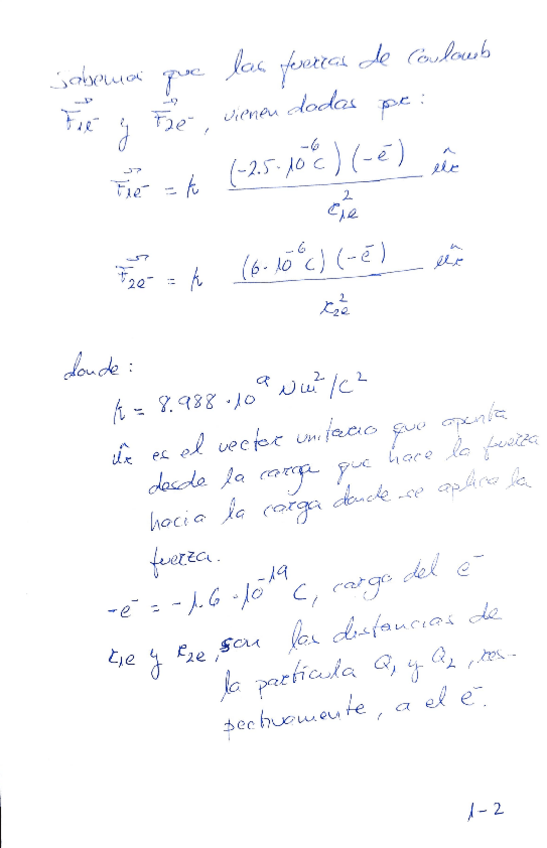 Sabemos que las fuerzas de Coulomb
F⃗1e⁻ y F⃗2e⁻, vienen dadas por:
F⃗1e⁻ = k (-2.5·10⁻⁶ C)(-e⁻) / r²1e ûr
F⃗2e⁻ = k (6·10⁻⁶ C)(-e⁻) / r²2e ûr
donde:
k = 8.988·10⁹ Nm²/C²
ûr es el vector unitario que apunta
desde la carga que hace la fuerza
hacia la carga donde se aplica la
fuerza.
-e⁻ = -1.6·10⁻¹⁹ C, carga del e⁻
r1e y r2e, son las distancias de
la partícula Q1 y Q2, res-
pectivamente, a el e⁻.
1-2